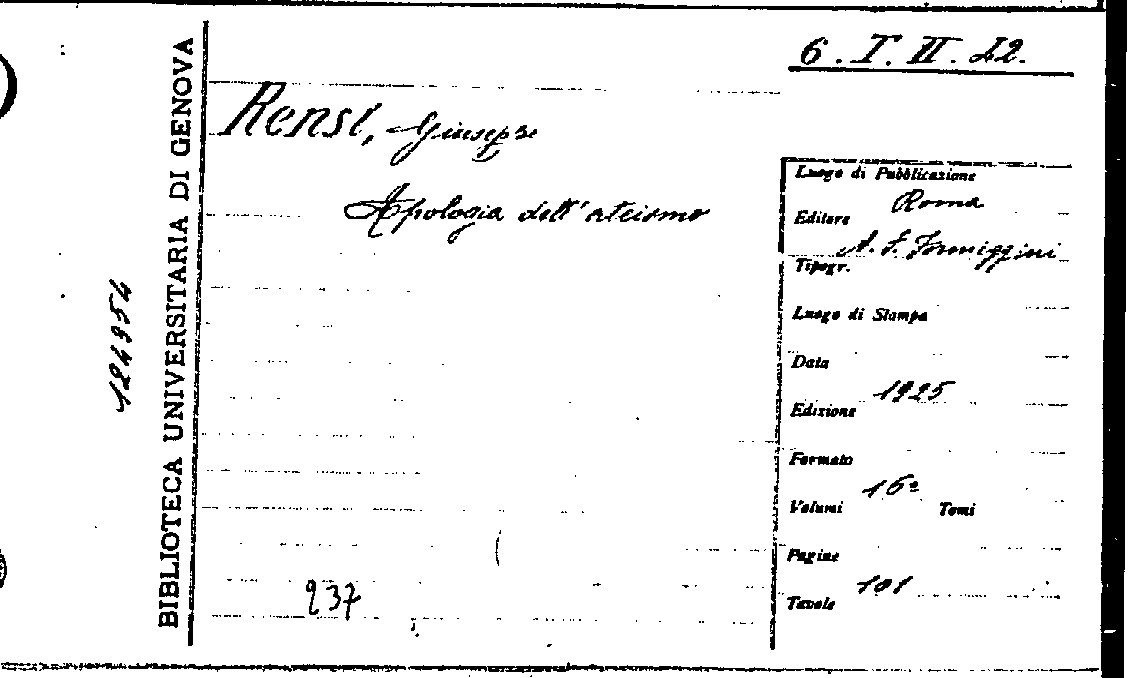 6. I. II. 22.
Rensi, Giuseppe
Apologia dell'ateismo
Luogo di Pubblicazione
Roma
Editore
A. F. Formiggini
Tipogr.
Luogo di Stampa
Data
1925
Edizione
Formato
16º
Volumi Tomi
Pagine
101
Tavole
237
124954
BIBLIOTECA UNIVERSITARIA DI GENOVA